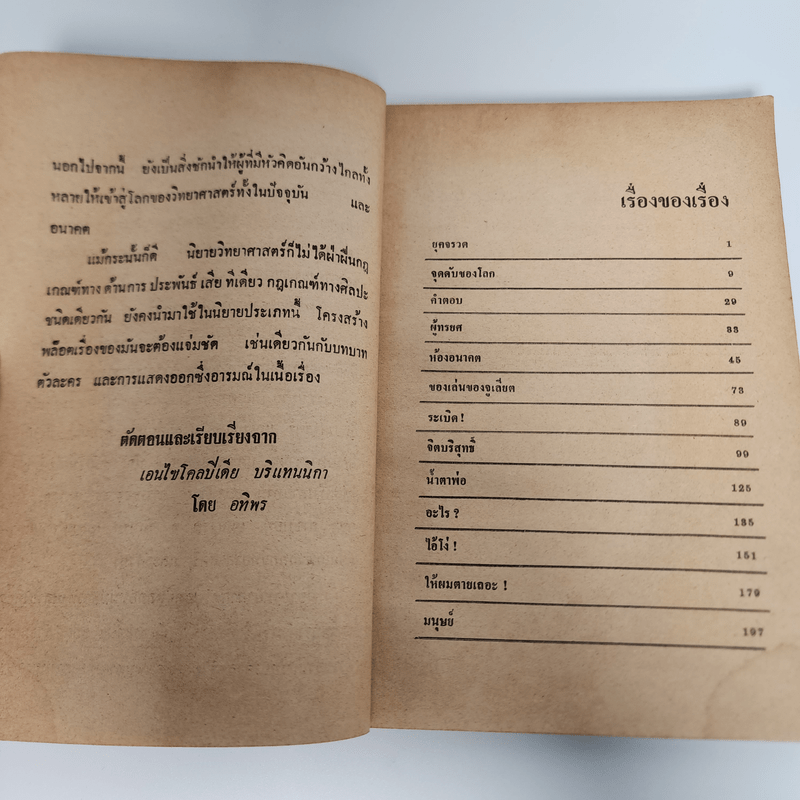 นอกไปจากนี้ ยังเป็นสิ่งชักนำให้ผู้ที่มีหัวคิดอันกว้างไกลทั้ง
หลายให้เข้าสู่โลกของวิทยาศาสตร์ทั้งในปัจจุบัน และ
อนาคต
แม้กระนั้นก็ดี นิยายวิทยาศาสตร์ก็ไม่ได้ฝ่าฝืนกฎ
เกณฑ์ทาง ด้านการ ประพันธ์ เสีย ทีเดียว กฎเกณฑ์ทางศิลปะ
ชนิดเดียวกัน ยังคงนำมาใช้ในนิยายประเภทนี้ โครงสร้าง
พล็อตเรื่องของมันจะต้องแจ่มชัด เช่นเดียวกันกับบทบาท
ตัวละคร และการแสดงออกซึ่งอารมณ์ในเนื้อเรื่อง
ตัดตอนและเรียบเรียงจาก
เอนไซโคลปีเดีย บริแทนนิกา
โดย อทิพร
เรื่องของเรื่อง
ยุคจรวด 1
จุดดับของโลก 9
คำตอบ 29
ผู้ทรยศ 33
ห้องอนาคต 45
ของเล่นของจูเลียต 73
ระเบิด ! 89
จิตบริสุทธิ์ 99
น้ำตาพ่อ 125
อะไร ? 135
ไอ้โง่ ! 151
ให้ผมตายเถอะ ! 179
มนุษย์ 197